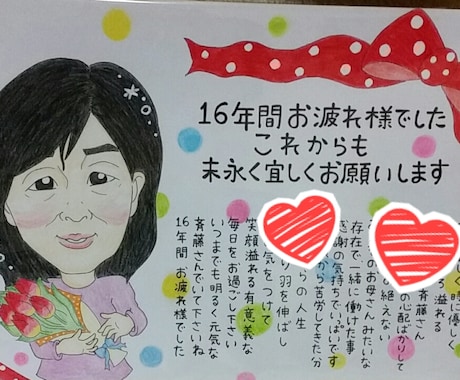 16年間お疲れ様でした
これからも
末永く宜しくお願いします
しく時に優しく
溢れる
斉藤さん
配ばかりして
の絶えない
のお母さんみたいな
存在で一緒に働けた事
感謝の気持ちでいっぱいです
苦労してきた分
り羽を伸ばし
らの人生
気をつけて
笑顔溢れる有意義な
毎日をお過ごし下さい
いつまでも明るく元気な
斉藤さんでいて下さいね
16年間お疲れ様でした